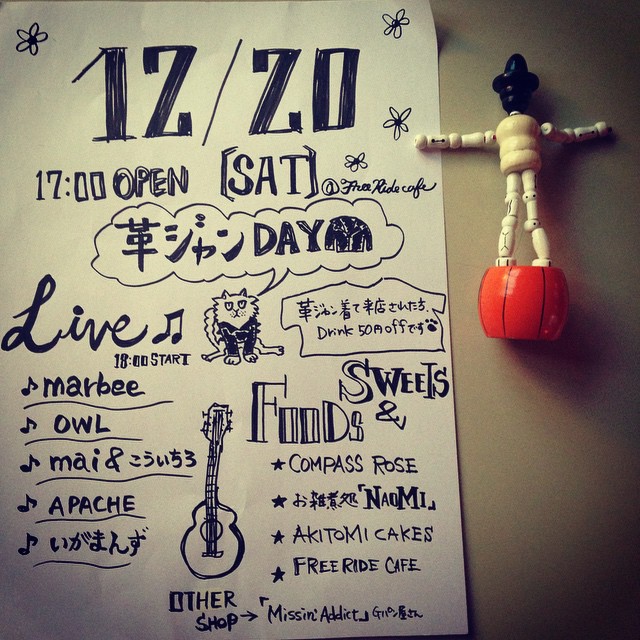 12/20
17:00 OPEN [SAT] @ Free Ride cafe
革ジャン DAY
Live♫
18:00 START
革ジャン着て来店された方、
Drink 50円offです
♪ marbee
♪ OWL
♪ mai& こういちろ
♪ APACHE
♪ いがまんず
FOODS & SWEETS
★ COMPASS ROSE
★ お雑煮処「NAOMI」
★ AKITOMI CAKES
★ FREERIDE CAFE
OTHER SHOP → 「Missin' Addict」Gパン屋さん